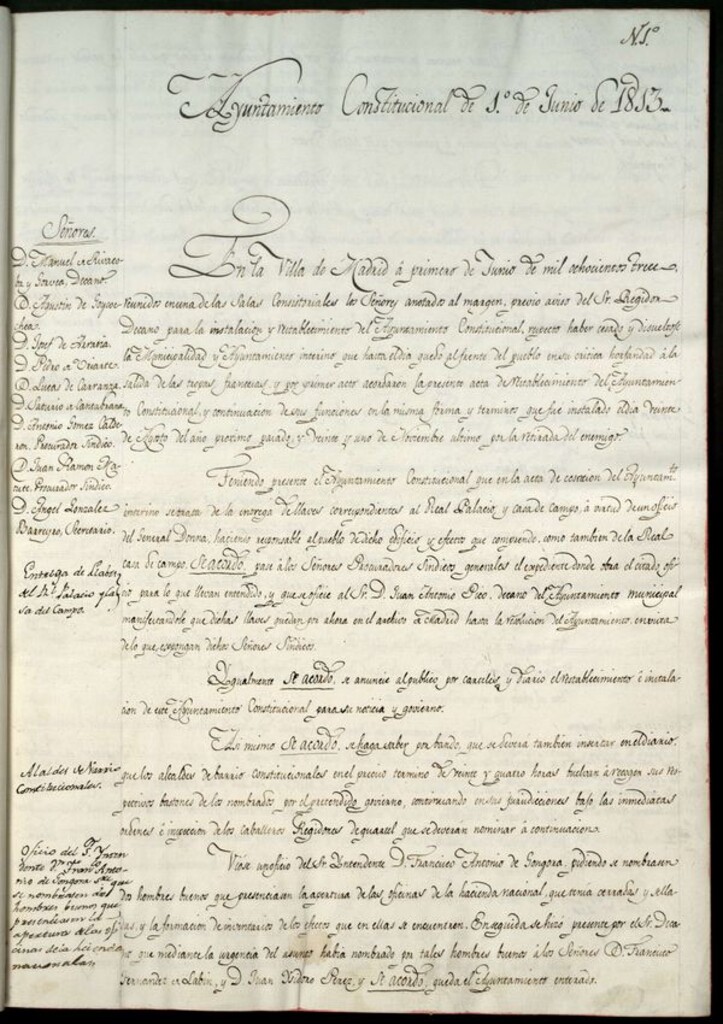 N.1º
Ayuntamiento Constitucional de 1.º de Junio de 1813.
Señores.
D. Manuel de
y Govea, Decano.
D. Agustin de Goycoe-
chea.
D. Josef de
D. Pedro de Uriarte.
D. Lucas de Carranza
D. Saturio de Cantabrana
D. Antonio Gomez Calde-
ron, Procurador Sindico.
D. Juan Ramon Ma-
tute, Procurador Sindico.
D. Angel Gonzalez
Barreyro, Secretario.
En la Villa de Madrid á primero de Junio de mil ochocientos trece,
reunidos en una de las Salas Consistoriales los Señores anotados al margen, previo aviso del Sr. Regidor
Decano para la instalacion y restablecimiento del Ayuntamiento Constitucional, respecto haber cesado y disueltose
la Municipalidad y Ayuntamiento interino que hasta el dia quedó al frente del pueblo en su critica horfandad á la
salida de las tropas francesas, y por primer acto acordaron la presente acta de restablecimiento del Ayuntamien-
to Constitucional, y continuacion de sus funciones en la misma forma y terminos que fue instalado el dia veinte
de Agosto del año proximo pasado, y veinte y uno de Noviembre ultimo por la retirada del enemigo.
Teniendo presente el Ayuntamiento Constitucional que en la acta de cesacion del Ayuntam.to
interino se trata de la entrega de llaves correspondientes al Real Palacio, y casa de campo, á virtud de un oficio
del General haciendo responsable al pueblo de dicho Edificio y efectos que comprende, como tambien de la Real
casa de campo, Se acordó, pase á los Señores Procuradores Sindicos generales el expediente donde obra el citado ofi-
cio para lo que llevan entendido, y que se oficie al Sr. D. Juan Antonio Pico, decano del Ayuntamiento municipal
manifestandole que dichas llaves quedan por ahora en el archivo de Madrid hasta la resolucion del Ayuntamiento, en vista
de lo que expongan dichos Señores Sindicos.
Entrega de llabes
del Rl. Palacio y Ca-
sa del Campo.
Ygualmente Se acordó, se anuncie al publico por carteles, y Diario el restablecimiento é instala-
cion de este Ayuntamiento Constitucional para su noticia y govierno.
Alcaldes de Varrio
Constitucionales.
Asi mismo Se acordó, se haga saber por bando, que se deverá tambien insertar en el diario,
que los alcaldes de barrio constitucionales en el preciso termino de veinte y quatro horas buelvan á recoger sus res-
pectivos bastones de los nombrados por el pretendido govierno, continuando en sus jurisdicciones bajo las inmediatas
ordenes é inspeccion de los caballeros Regidores de quartel que se deveran nominar á continuacion.
Oficio del S. Ynten-
dente Dn. Franco. Anto-
nio de Gongora sre. que
se nombrasen dos
hombres buenos que
presenciasen la
apertura de las ofi-
cinas de la hacienda
nacional
Viose un oficio del Sr. Yntendente D. Francisco Antonio de Gongora, pidiendo se nombrasen
dos hombres buenos que presenciasen la apertura de las oficinas de la hacienda nacional, que tenia cerradas y sella-
das, y la formacion de inventarios de los efectos que en ellas se encuentren. En seguida se hizo presente por el Sr. Deca-
no que mediante la urgencia del asunto habia nombrado por tales hombres buenos á los Señores D. Francisco
Fernandez de Labin, y D. Juan Ysidoro Perez, y Se acordó, queda el Ayuntamiento enterado.